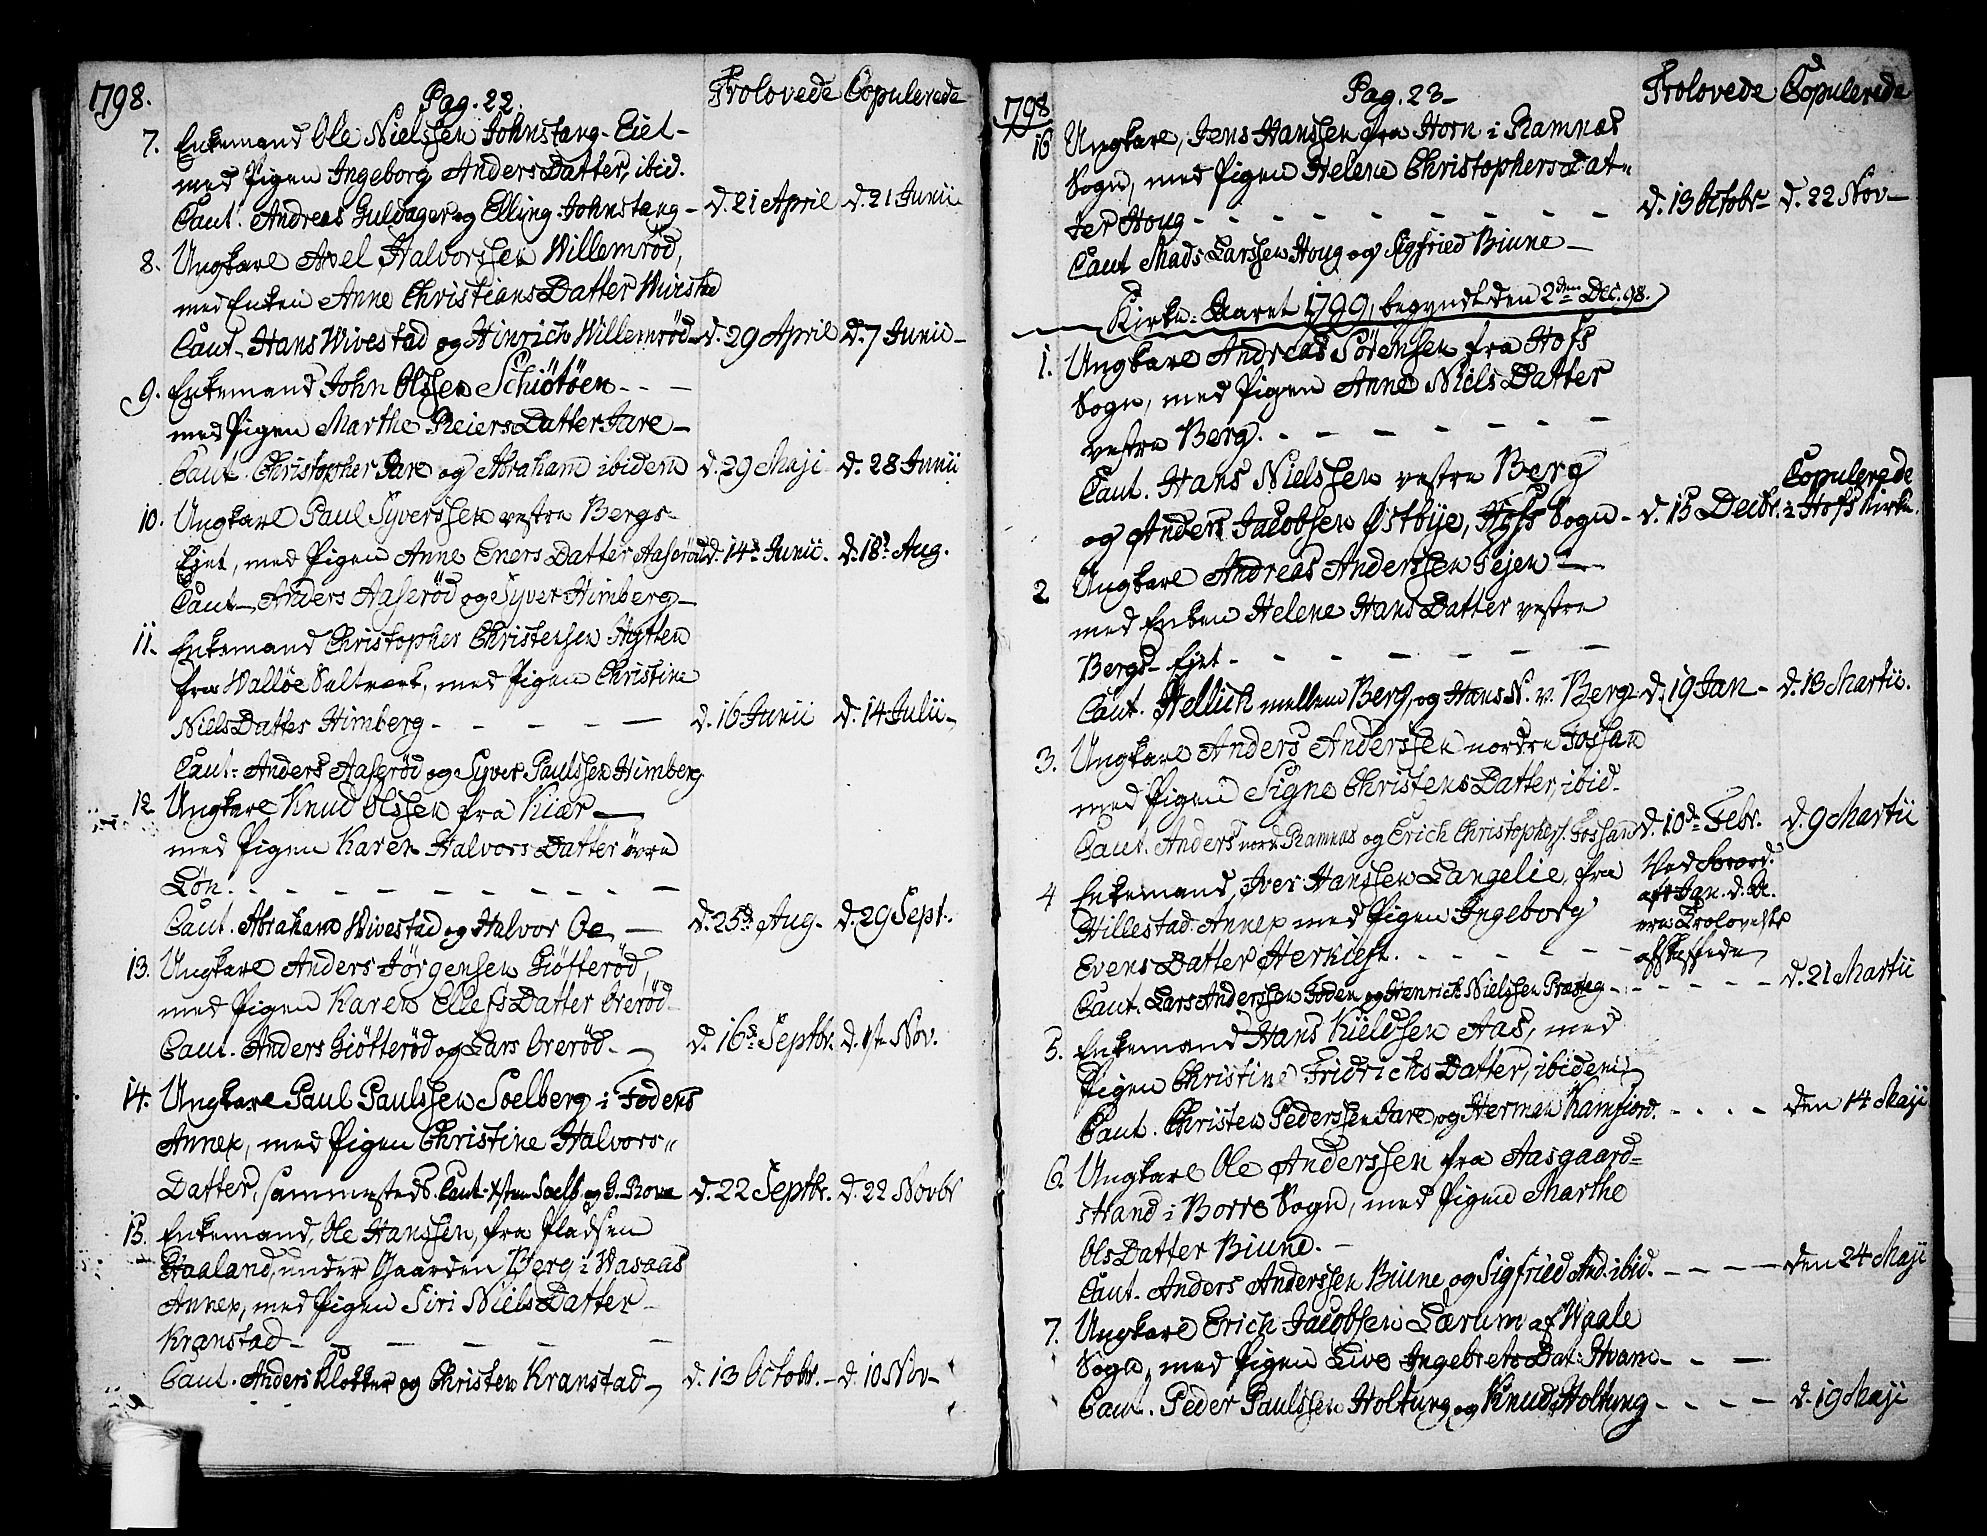 1798.
Pag. 22.
Trolovede Copulerede
7. Enkemand Ole Nielssen Johnstang-Eiet-
med Pigen Ingeborg Anders Datter, ibid.
Caut. Andreas Guldager og Elling Johnstang - d. 21 April d. 21 Junii
8. Ungkarl Axel Halvorssen Willemrød,
med Enken Anne Christians Datter Wivestad
Caut. Hans Wivestad og Hinrich Willemrød - d. 29 April d. 7 Junii -
9. Enkemand John Olssen Schiötöen - - -
med Pigen Marthe Reiers Datter Jare -
Caut. Christopher Jare og Abraham ibidem d. 29 Maji d. 28 Junii
10. Ungkarl Paul Syverssen vestre Bergs-
Ejet, med Pigen Anne Eners Datter Aaserød d. 14d Junii. d. 18d Aug.
Caut - Anders Aaserød og Syver Himberg -
11. Enkemand Christopher Christensen Hytten
fra Walløe Saltverk, med Pigen Christine
Niels Datter Himberg - - - - - d. 16 Junii d. 14 Julii -
Caut: Anders Aaserød og Syver Paulssen Himberg
12 Ungkarl Knud Olssen fra Kiær -
med Pigen Karen Halvors Datter övre
Lön. - - - - - - - - - -
Caut. Abraham Wivestad og Halvor Oe - d. 25d Aug. d. 29 Sept.
13. Ungkarl Anders Jörgensen Giötterød,
med Pigen Karen Ellefs Datter Orerød
Caut. Anders Giötterød og Lars Orerød - d. 16d Septbr. d. 1ste Nov.
14. Ungkarl Paul Paulssen Soelberg i Fodens
Annex, med Pigen Christine Halvors"
Datter, sammesteds. Caut. Xsten Soelb. og G. Rove d. 22 Septbr. d. 22 Novbr
15. Enkemand, Ole Hanssen, fra Pladsen
Haaland, under Gaarden Berg i Wasaas
Annex, med Pigen Siri Niels Datter
Kranstad - - - - - -
Caut. Anders Klokker og Christen Kranstad - d. 13 Octobr. - d. 10 Nov -
1798
Pag. 23 -
Trolovede Copulerede
16 Ungkarl, Jens Hanssen fra Horn i Ramnæs
Sogn, med Pigen Helene Christophers Dat"
ter Houg - - - - - - - - - - d. 13 Octobr - d. 22 Nov -
Caut Mads Larssen Houg og Sigfried Biune -
Kirke-Aaret 1799, begyndt den 2den Dec. 98.
1. Ungkarl Andreas Sörensen fra Hofs
Sogn, med Pigen Anne Niels Datter
vestre Berg. - - - - - - -
Caut. Hans Nielssen vestre Berg
Copulerede
og Anders Jacobsen Østbye, Hofs Sogn - d. 15 Decbr. i Hofs Kirke.
2 Ungkarl Andreas Anderssen Gejen -
med Enken Helene Hans Datter vestre
Bergs-Ejet - - - - - - -
Caut. Hellich mellem Berg, og Hans N. v. Berg - d. 19 Jan - d. 13 Martii.
3. Ungkarl Anders Anderssen nordre Fossan
med Pigen Signe Christens Datter, ibid.
Caut. Anders nord Ramnas og Erich Christophers. Fossan d. 10d Febr. d. 9 Martii
4 Enkemand, Iver Hanssen Langelie, fra
Hillestad Annex med Pigen Ingeborg
Evens Datter Herkiest. - - - - -
Ved Forord.
af 4 Jan. d. A.
ere Trolovelse
afskaffede
Caut. Lars Anderssen Foden og Henrich Nielssen Præsteg - - - - - d. 21 Martii
5. Enkemand Hans Kieldsen Aas, med
Pigen Christine Fridrichs Datter, ibidem
Caut. Christen Pederssen Jare og Herman Kamfiord. - - - - den 14 Maji
6. Ungkarl Ole Anderssen fra Aasgaard-
strand i Borre Sogn, med Pigen Marthe
Ols Datter Biune. -
Caut. Anders Anderssen Biune og Sigfried And. ibid. - - - - den 24 Maji
7. Ungkarl Erich Jacobsen Lærum af Waale
Sogn, med Pigen Live Ingebrets Dat: Hvam - - -
Caut. Peder Paulssen Holtung og Knud Holtung - - - - d. 19 Maji